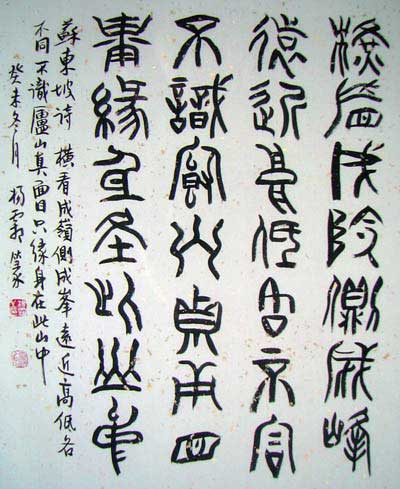 橫看成嶺側成峰
遠近高低各不同
不識廬山真面目
只緣身在此山中
蘇東坡诗 橫看成嶺側成峯遠近高低各
不同不識廬山真面目只緣身在此山中
癸未冬月 楊霜篆